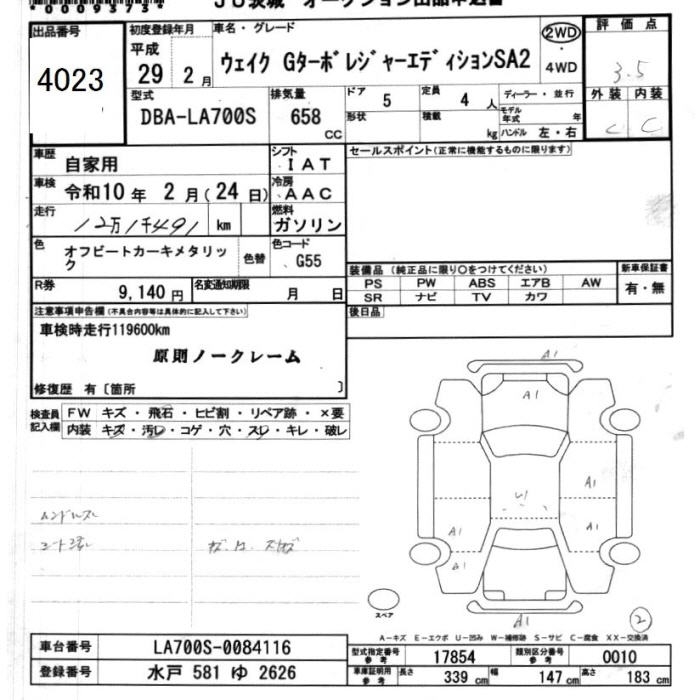 00093739
JU茨城 オークション出品申込書
出品番号 4023
初度登録年月 平成 29 2月
車名・グレード ウェイク GターボレジャーエディションSA2
2WD ・ 4WD
評価点 3.5
外装 内装
C C
型式 DBA-LA700S
排気量 658 CC
ドア 5 定員 4 人
形状 積載 kg
ディーラー・並行
モデル年式 年
ハンドル 左・右
車歴 自家用
シフト IAT
車検 令和10年 2月(24日)
冷房 AAC
走行 12万1千491 km
燃料 ガソリン
色 オフビートカーキメタリック 色替
色コード G55
R券 9,140円
名変通知期限 月 日
セールスポイント(正常に機能するものに限ります)
装備品 (純正品に限り○をつけてください)
PS PW ABS エアB AW
SR ナビ TV カワ
新車保証書 有・無
後日品
注意事項申告欄(不具合内容等は具体的に記入して下さい)
車検時走行119600km
原則ノークレーム
修復歴 有〔箇所 〕
検査員記入欄
FW キズ・飛石・ヒビ割・リペア跡・×要
内装 キズ・汚レ・コゲ・穴・スレ・キレ・破レ
A1
A1
A1
A1
A1
A1
A1
A1
スペア
②
A-キズ E-エクボ U-凹み W-補修跡 S-サビ C-腐食 XX-交換済
車台番号 LA700S-0084116
登録番号 水戸 581 ゆ 2626
型式指定番号 参考 17854 類別区分番号 参考 0010
車庫証明用 参考 長さ 339 cm 幅 147 cm 高さ 183 cm